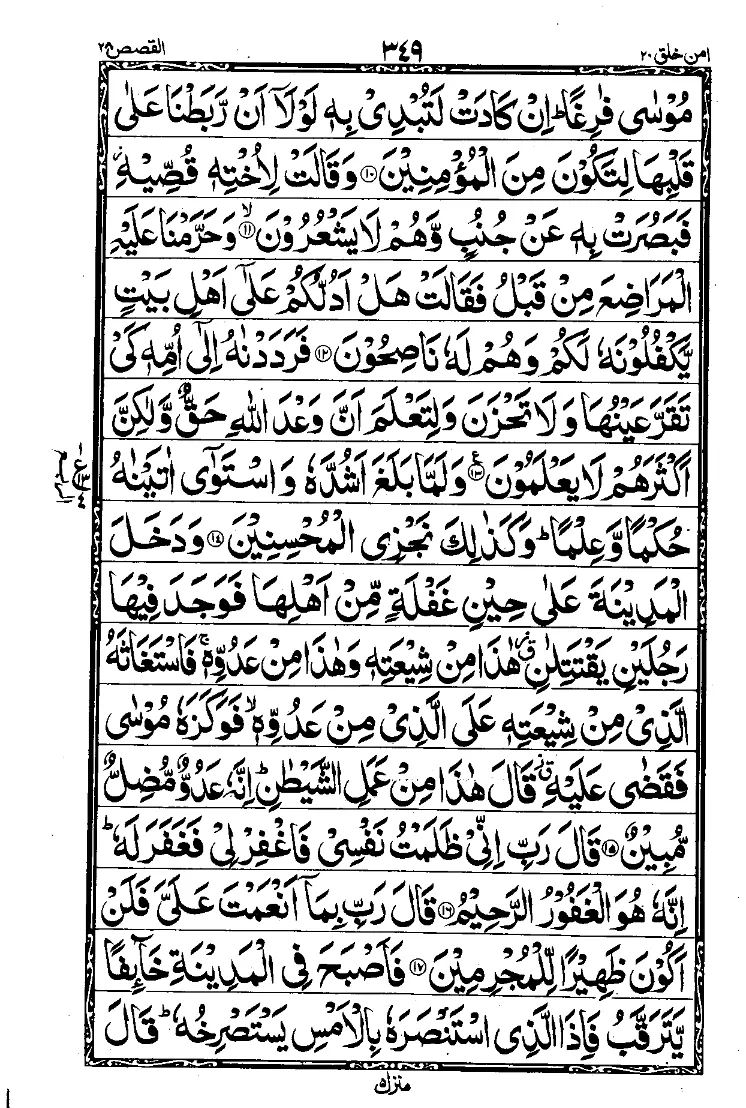 امن خلق ٢٠ ٣٤٩ القصص ٢٨
مُوْسٰى فٰرِغًا ؕ اِنْ كَادَتْ لَتُبْدِىْ بِهٖ لَوْلَاۤ اَنْ رَّبَطْنَا عَلٰى
قَلْبِهَا لِتَكُوْنَ مِنَ الْمُؤْمِنِيْنَ ﴿١٠﴾ وَقَالَتْ لِاُخْتِهٖ قُصِّيْهِ ؗ
فَبَصُرَتْ بِهٖ عَنْ جُنُبٍ وَّهُمْ لَا يَشْعُرُوْنَ ۙ﴿١١﴾ وَحَرَّمْنَا عَلَيْهِ
الْمَرَاضِعَ مِنْ قَبْلُ فَقَالَتْ هَلْ اَدُلُّكُمْ عَلٰٓى اَهْلِ بَيْتٍ
يَّكْفُلُوْنَهٗ لَكُمْ وَهُمْ لَهٗ نَاصِحُوْنَ ﴿١٢﴾ فَرَدَدْنٰهُ اِلٰٓى اُمِّهٖ كَىْ
تَقَرَّ عَيْنُهَا وَلَا تَحْزَنَ وَلِتَعْلَمَ اَنَّ وَعْدَ اللّٰهِ حَقٌّ وَّلٰكِنَّ
اَكْثَرَهُمْ لَا يَعْلَمُوْنَ ۧ﴿١٣﴾ وَلَمَّا بَلَغَ اَشُدَّهٗ وَاسْتَوٰٓى اٰتَيْنٰهُ
حُكْمًا وَّعِلْمًا ؕ وَكَذٰلِكَ نَجْزِى الْمُحْسِنِيْنَ ﴿١٤﴾ وَدَخَلَ
الْمَدِيْنَةَ عَلٰى حِيْنِ غَفْلَةٍ مِّنْ اَهْلِهَا فَوَجَدَ فِيْهَا
رَجُلَيْنِ يَقْتَتِلٰنِ ؗ هٰذَا مِنْ شِيْعَتِهٖ وَهٰذَا مِنْ عَدُوِّهٖ ۚ فَاسْتَغَاثَهُ
الَّذِىْ مِنْ شِيْعَتِهٖ عَلَى الَّذِىْ مِنْ عَدُوِّهٖ ۙ فَوَكَزَهٗ مُوْسٰى
فَقَضٰى عَلَيْهِ ؗ قَالَ هٰذَا مِنْ عَمَلِ الشَّيْطٰنِ ؕ اِنَّهٗ عَدُوٌّ مُّضِلٌّ
مُّبِيْنٌ ﴿١٥﴾ قَالَ رَبِّ اِنِّىْ ظَلَمْتُ نَفْسِىْ فَاغْفِرْ لِىْ فَغَفَرَ لَهٗ ؕ
اِنَّهٗ هُوَ الْغَفُوْرُ الرَّحِيْمُ ﴿١٦﴾ قَالَ رَبِّ بِمَاۤ اَنْعَمْتَ عَلَىَّ فَلَنْ
اَكُوْنَ ظَهِيْرًا لِّلْمُجْرِمِيْنَ ﴿١٧﴾ فَاَصْبَحَ فِى الْمَدِيْنَةِ خَآئِفًا
يَّتَرَقَّبُ فَاِذَا الَّذِى اسْتَنْصَرَهٗ بِالْاَمْسِ يَسْتَصْرِخُهٗ ؕ قَالَ
منزل ٥